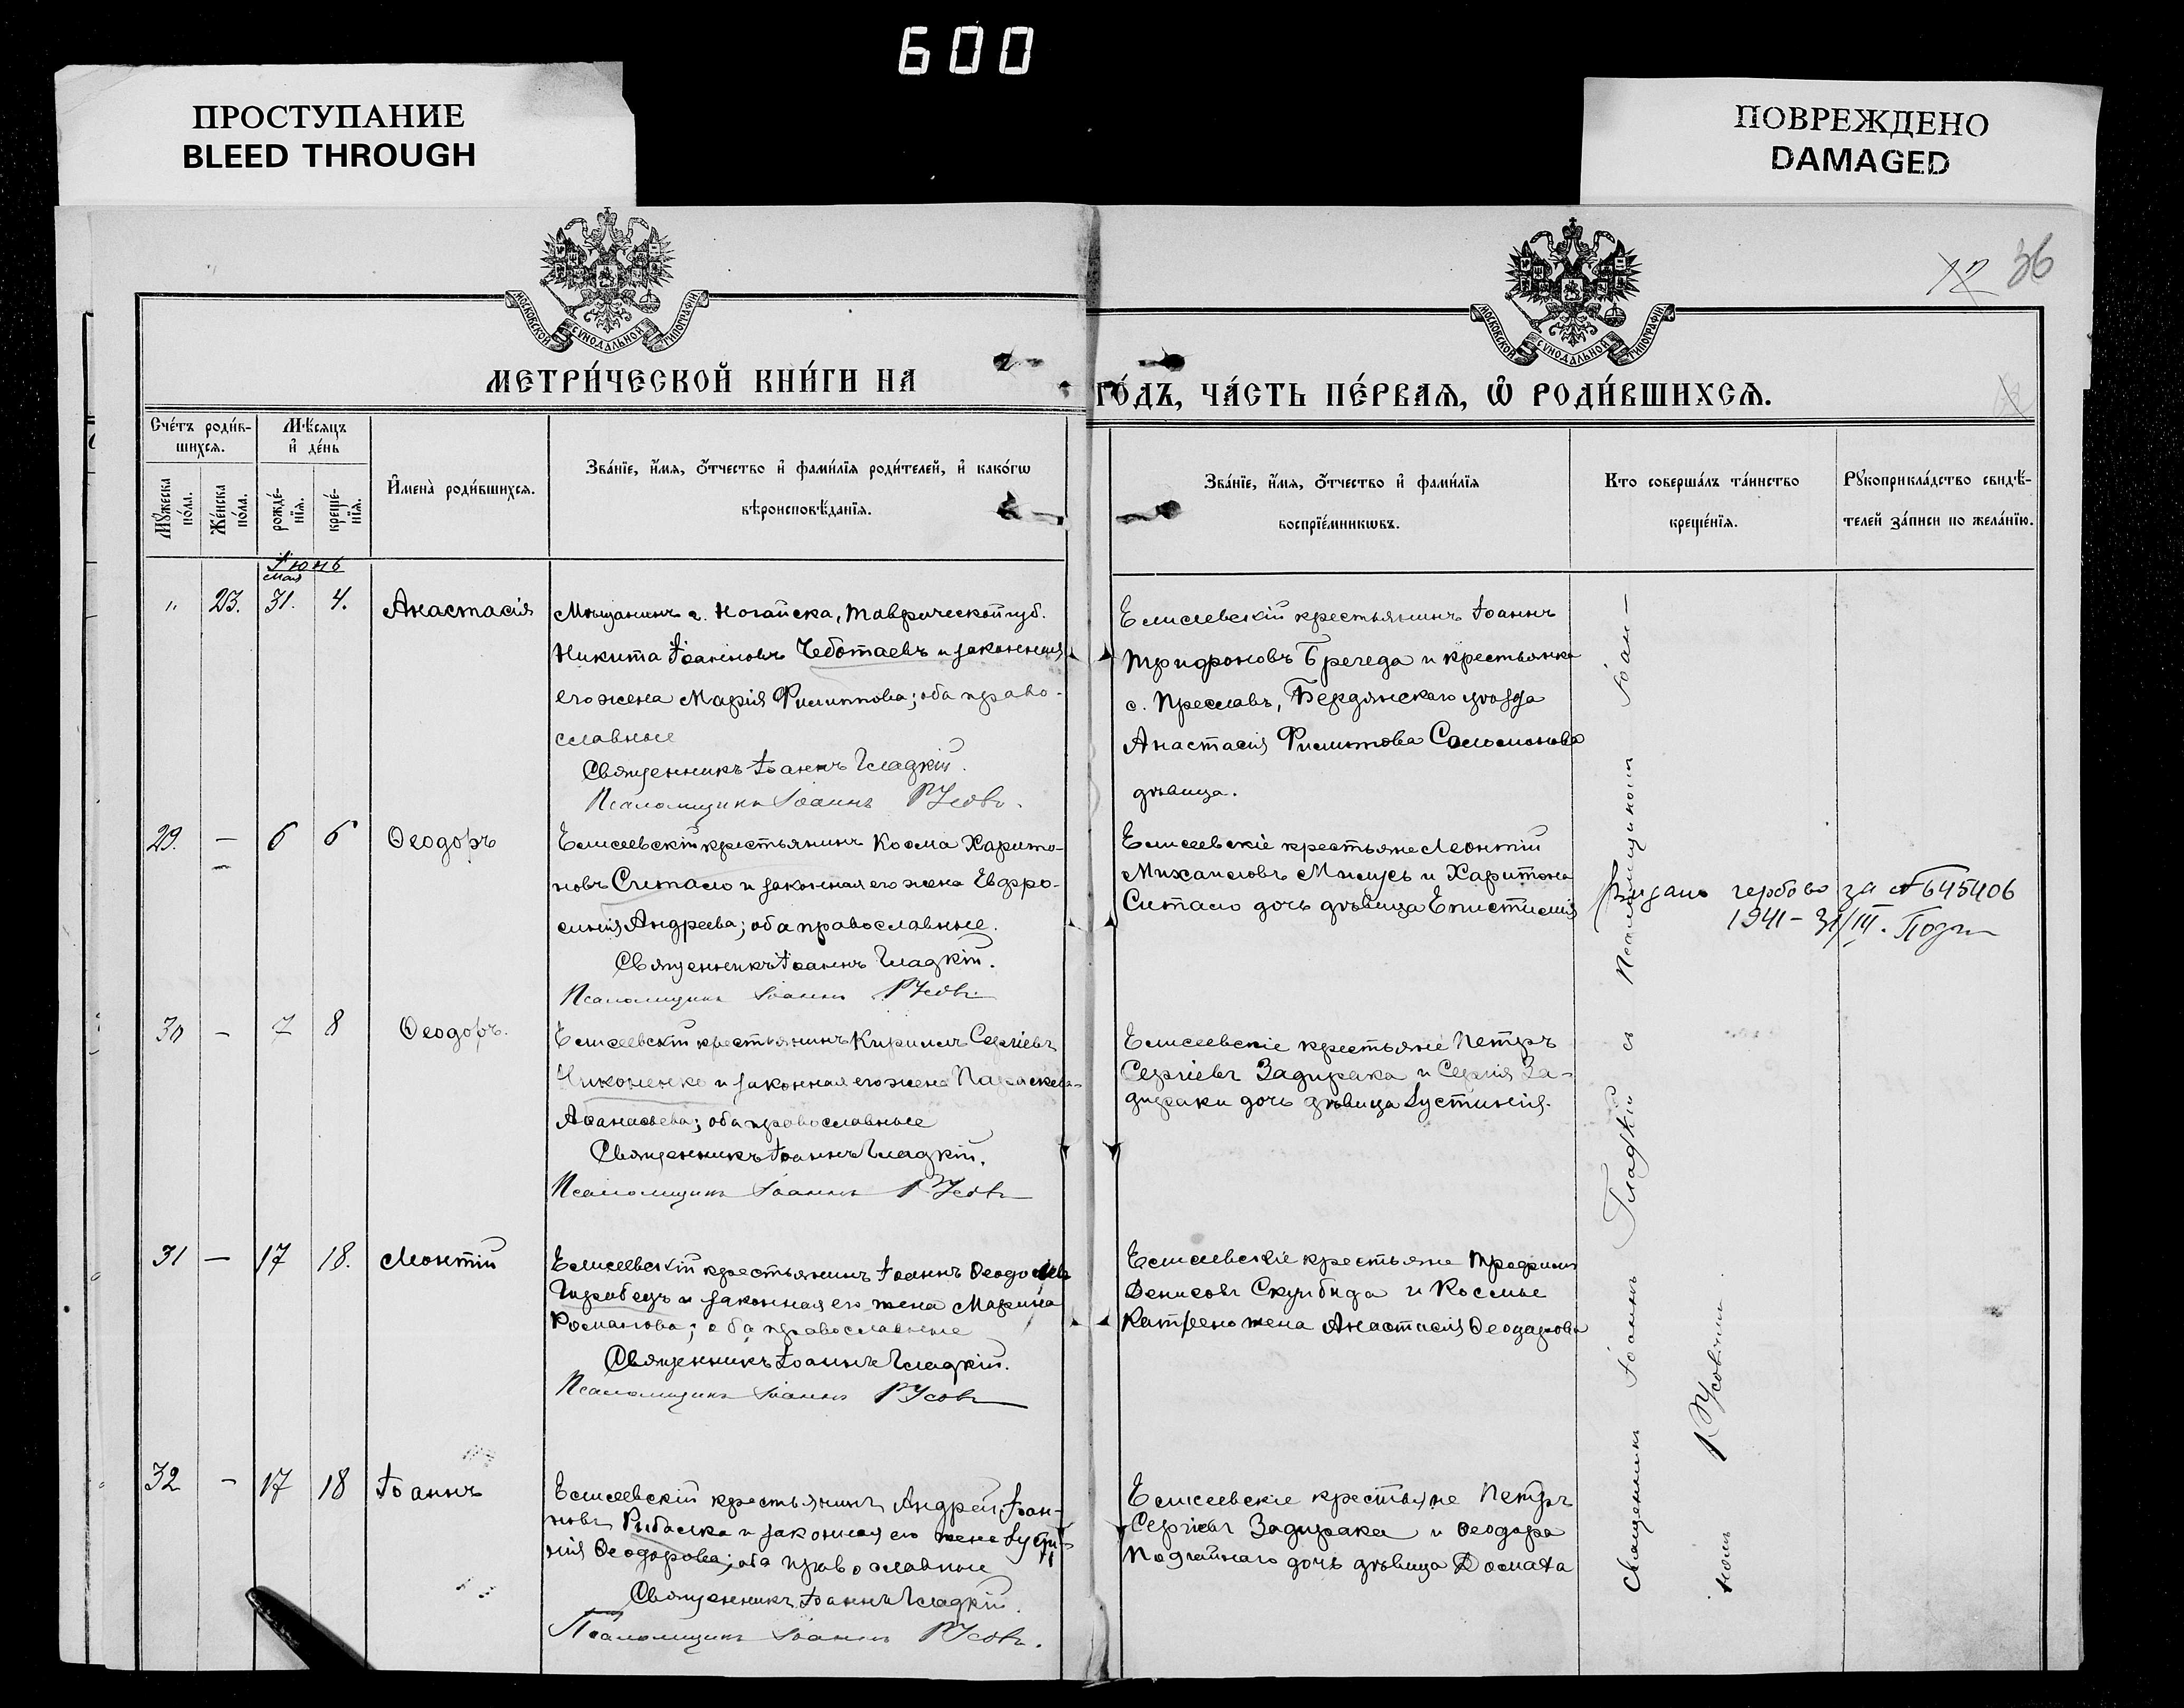 600
ПРОСТУПАНИЕ
BLEED THROUGH
ПОВРЕЖДЕНО
DAMAGED
МОСКОВСКОЙ СУНОДАЛЬНОЙ ТИПОГРАФІИ
МОСКОВСКОЙ СУНОДАЛЬНОЙ ТИПОГРАФІИ
12 36
МЕТРИ́ЧЕСКОЙ КНИ́ГИ НА
ГО́ДЪ, ЧА́СТЬ ПЕ́РВАѦ, Ѡ҆ РОДИ́ВШИХСѦ.
Сче́тъ роди́в-
шихсѧ.
Мѣ́сяцъ
и҆ де́нь
Мꙋ́жеска по́ла.
Же́нска по́ла.
рожде́-
нїѧ.
креще́-
нїѧ.
И҆мена̀ роди́вшихсѧ.
Зва́нїе, и҆́мѧ, ѻ҆́тчество и҆ фами́лїѧ роди́телей, и҆ како́гѡ
вѣроисповѣ́данїѧ.
Зва́нїе, и҆́мѧ, ѻ҆́тчество и҆ фами́лїѧ
воспрїе́мникѡвъ.
Кто соверша́лъ та́инство
креще́нїѧ.
Рꙋкоприкла́дство свидѣ́-
телей за́писи по жела́нїю.
Іюнь
мая
" 23. 31. 4. Анастасія
Мѣщанинъ г. Ногайска, Таврической губ.
Никита Іоанновъ Чеботаевъ и законная
его жена Марія Филиппова; оба право-
славные
Священникъ Іоаннъ Гладкій.
Псаломщикъ Іоаннъ Русовъ.
Елисеевскій крестьянинъ Іоаннъ
Трифоновъ Брегеда и крестьянка
с. Преславъ, Бердянскаго уѣзда
Анастасія Филиппова Соломонова
дѣвица.
29. — 6 6 Ѳеодоръ
Елисеевскій крестьянинъ Косма Харито-
новъ Ситало и законная его жена Евфро-
синія Андреева; оба православные.
Священникъ Іоаннъ Гладкій.
Псаломщикъ Іоаннъ Русовъ
Елисеевскіе крестьяне Леонтій
Михаиловъ Милусь и Харитона
Ситало дочь дѣвица Епистимія
Видано гербово за № 645406
1941 - 31/III.
30 — 7 8 Ѳеодоръ.
Елисеевскій крестьянинъ Кириллъ Сергіевъ
Никоненко и законная его жена Параскева
Аѳанасьева; оба православные
Священникъ Іоаннъ Гладкій.
Псаломщикъ Іоаннъ Русовъ
Елисеевскіе крестьяне Петръ
Сергіевъ Задирака и Сергія За-
дираки дочь дѣвица Іустинія.
31 — 17 18. Леонтій
Елисеевскій крестьянинъ Іоаннъ
и законная его жена Марина
Романова; оба православные
Священникъ Іоаннъ Гладкій.
Псаломщикъ Іоаннъ Русовъ
Елисеевскіе крестьяне Трофимъ
Денисовъ Скрибида и Космы
жена Анастасія Ѳеодорова
32 — 17 18 Іоаннъ
Елисеевскій крестьянинъ Андрей Іоан-
новъ Рибалка и законная его жена Іусти-
нія Ѳеодорова; оба православные
Священникъ Іоаннъ Гладкій.
Псаломщикъ Іоаннъ Русовъ.
Елисеевскіе крестьяне Петръ
Сергіевъ Задирака и Ѳеодора
Подгайнаго дочь дѣвица Домаха
Священникъ Іоаннъ Гладкій съ Псаломщикомъ Іоан-
номъ Русовымъ